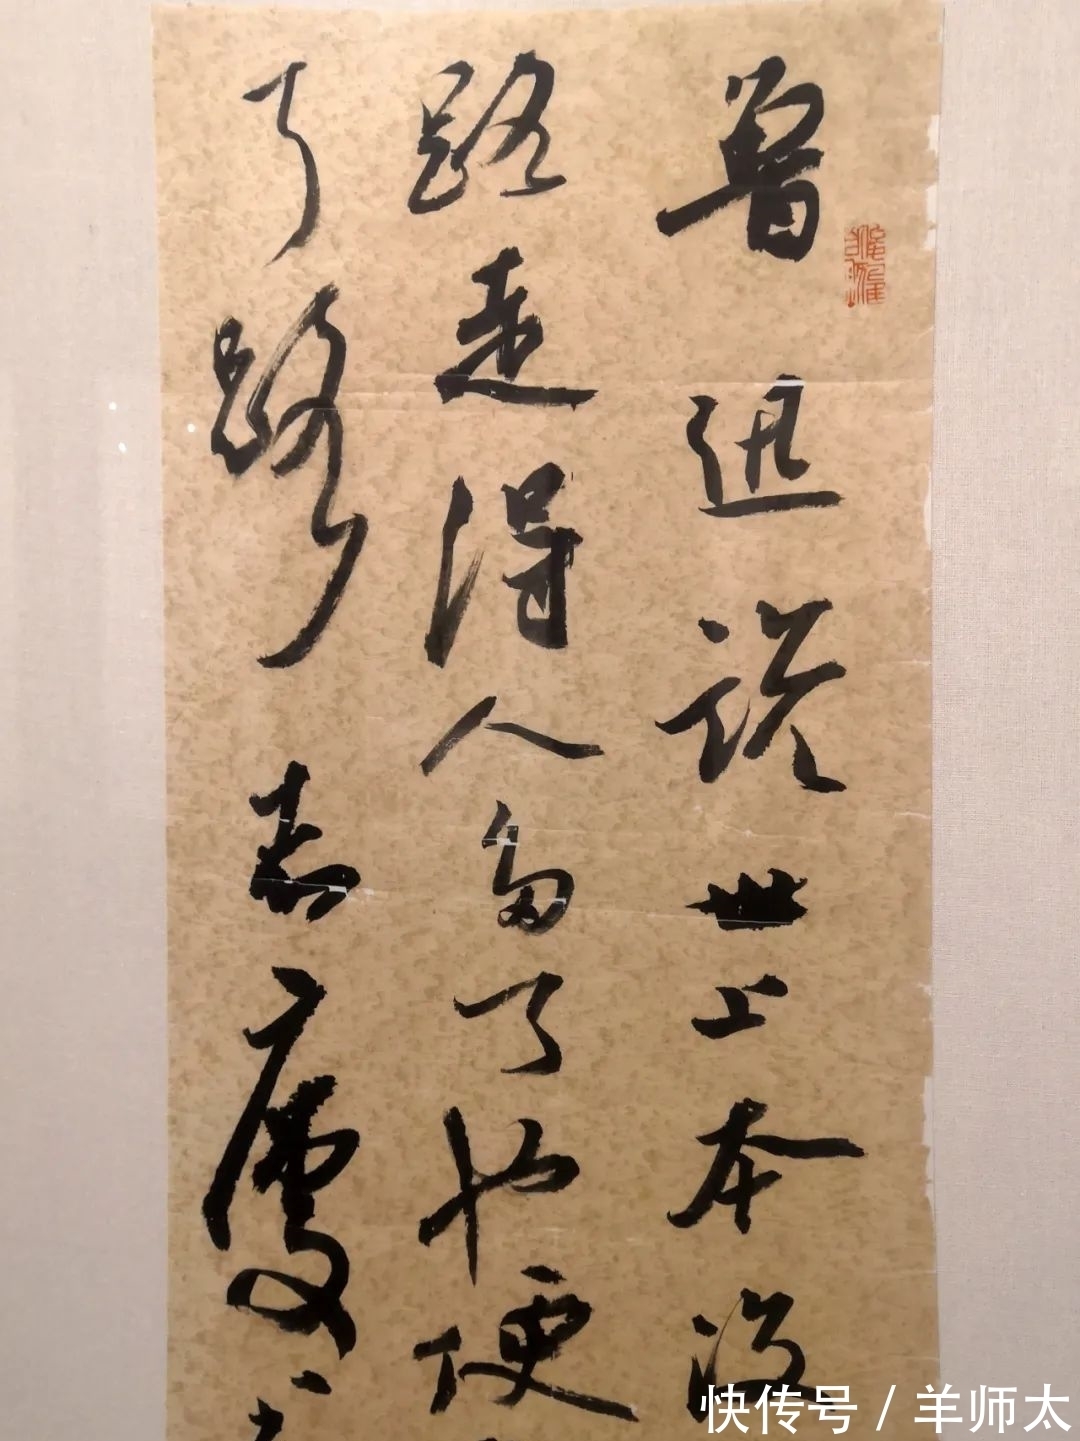 鲁迅说世上本没
路走得人多了也便
了路志庆
快传号 / 羊师太